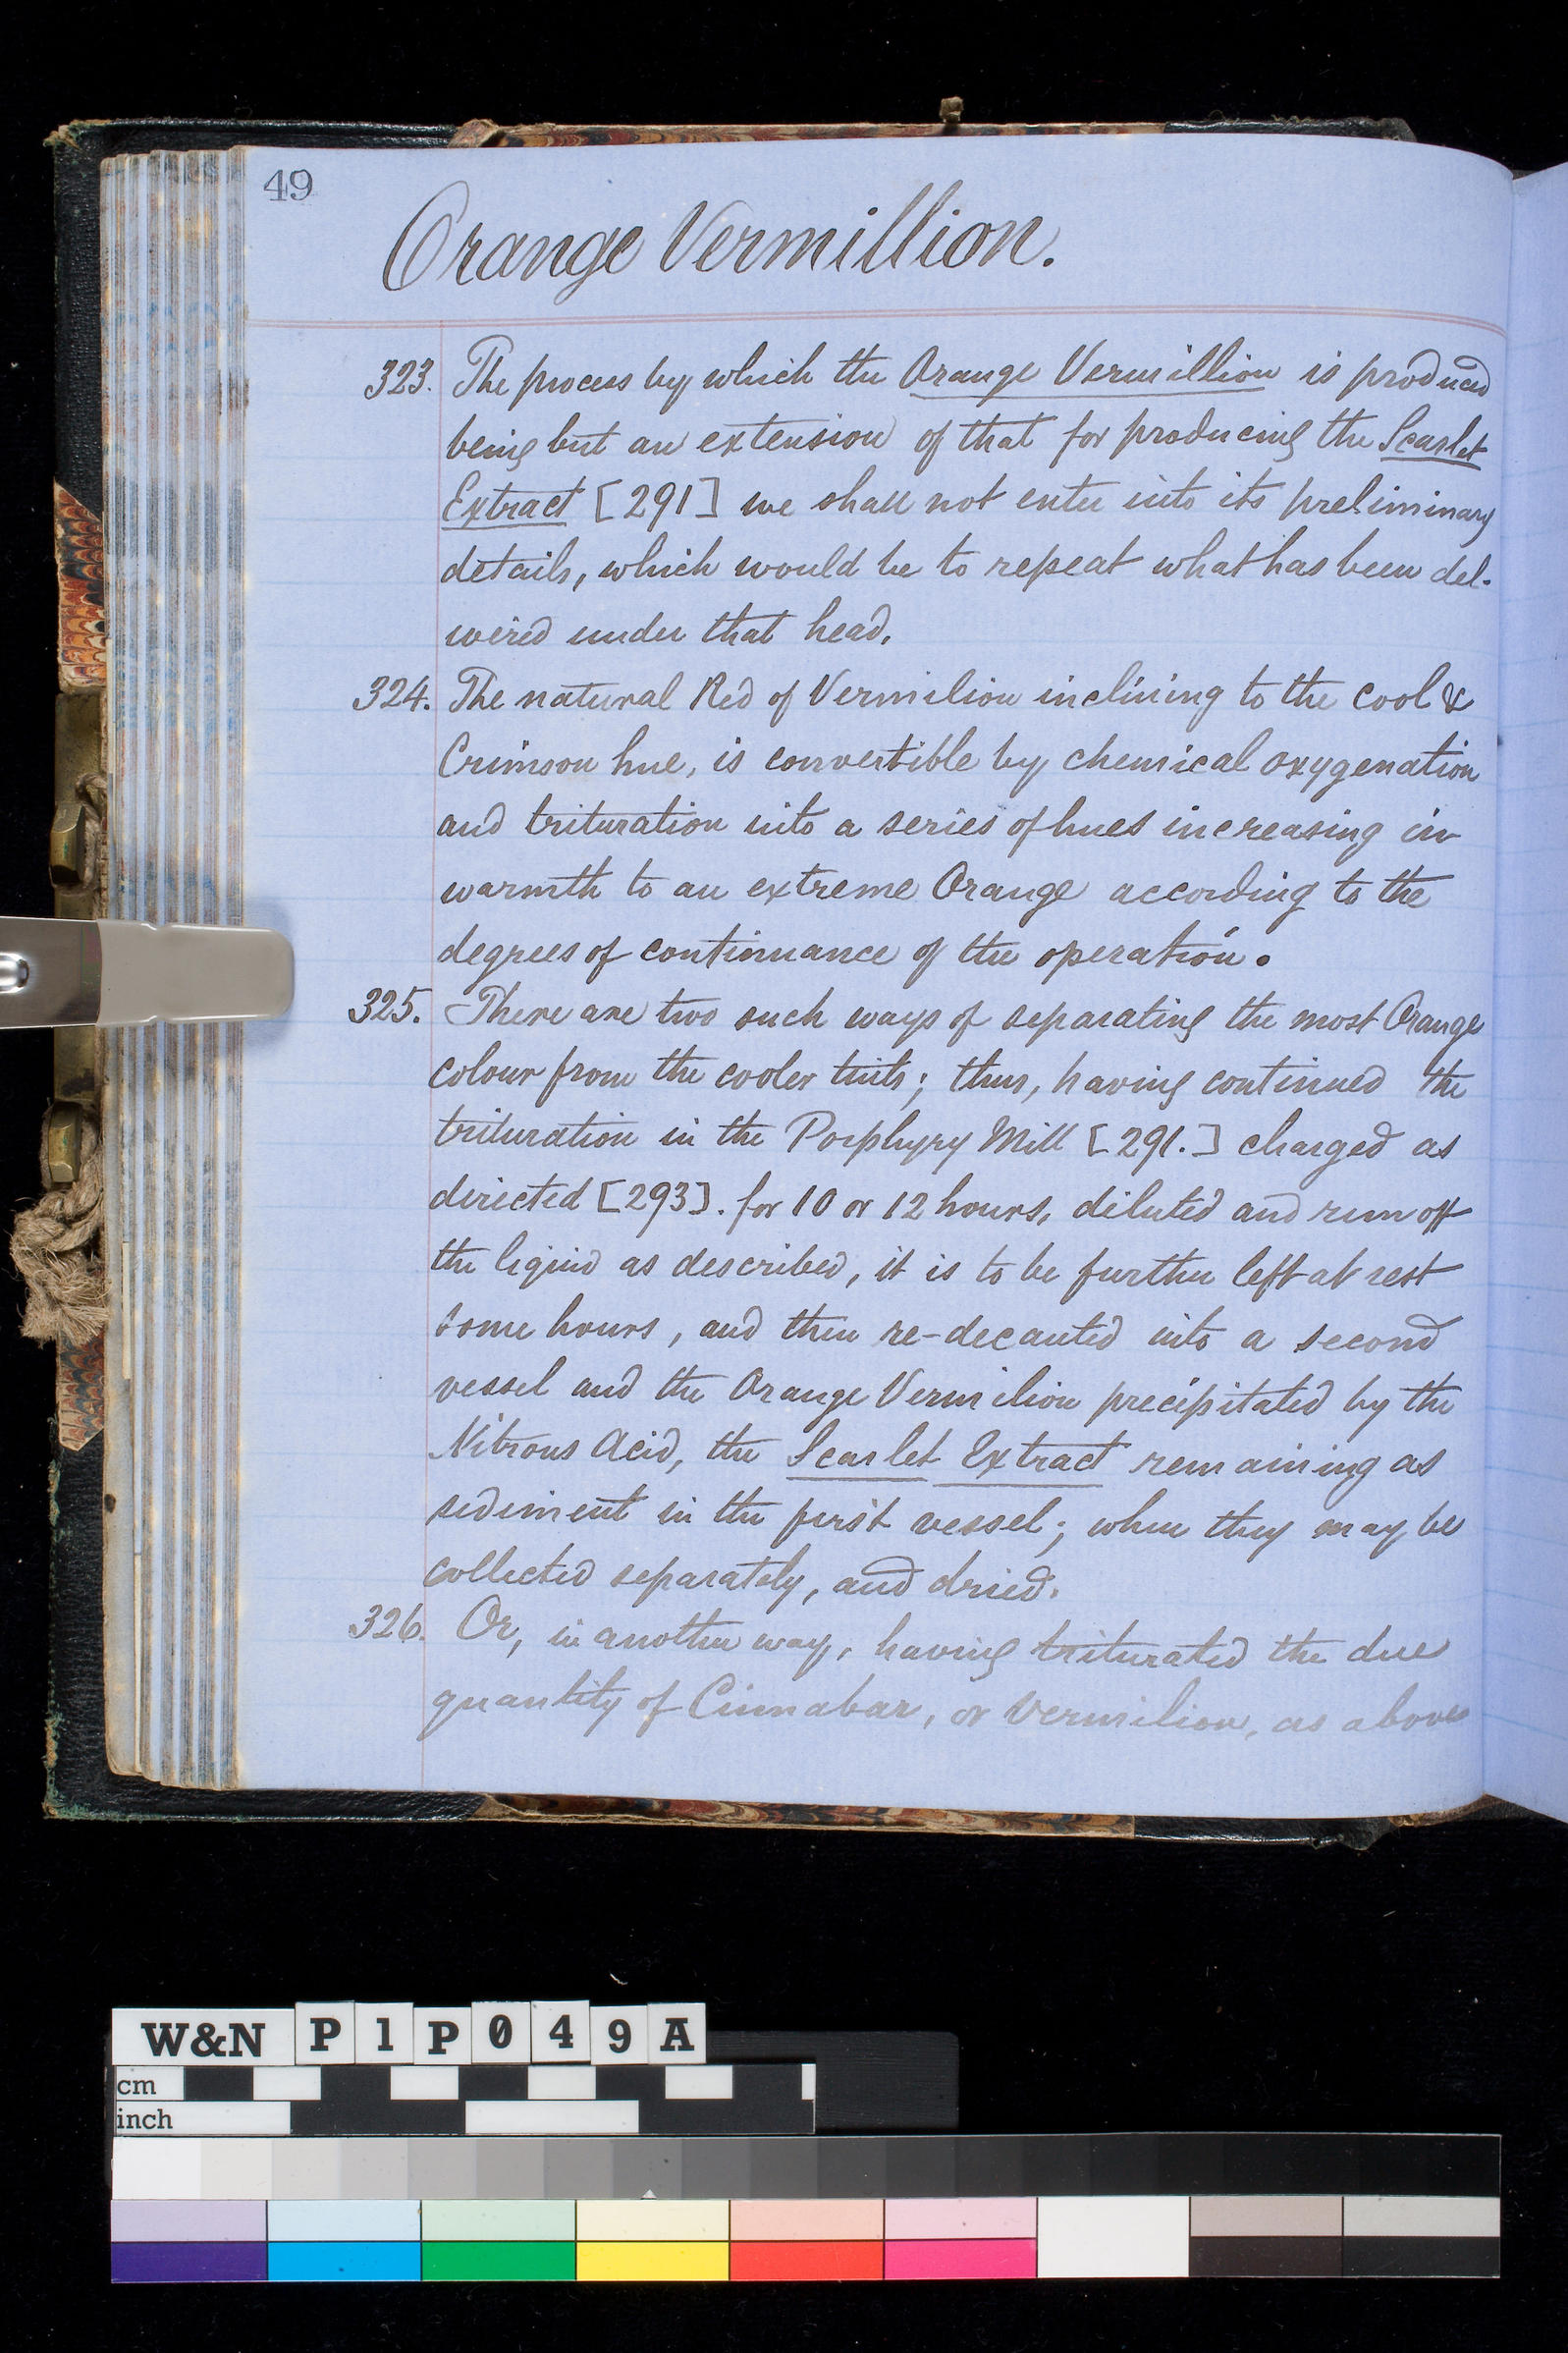 49
Orange Vermillion.
323. The process by which the Orange Vermillion is produced
being but an extension of that for producing the Scarlet
Extract [291] we shall not enter into its preliminary
details, which would be to repeat what has been del-
ivered under that head.
324. The natural Red of Vermilion inclining to the cool &
Crimson hue, is convertible by chemical oxygenation
and trituration into a series of hues increasing in
warmth to an extreme Orange according to the
degrees of continuance of the operation.
325. There are two such ways of separating the most Orange
colour from the cooler tints; thus, having continued the
trituration in the Porphyry Mill [291.] charged as
directed [293]. for 10 or 12 hours, diluted and run off
the liquid as described, it is to be further left at rest
some hours, and then re-decanted into a second
vessel and the Orange Vermilion precipitated by the
Nitrous Acid, the Scarlet Extract remaining as
sediment in the first vessel; when they may be
collected separately, and dried.
326. Or, in another way, having triturated the due
quantity of Cinnabar, or Vermilion, as above
W&N P1P049A
cm
inch